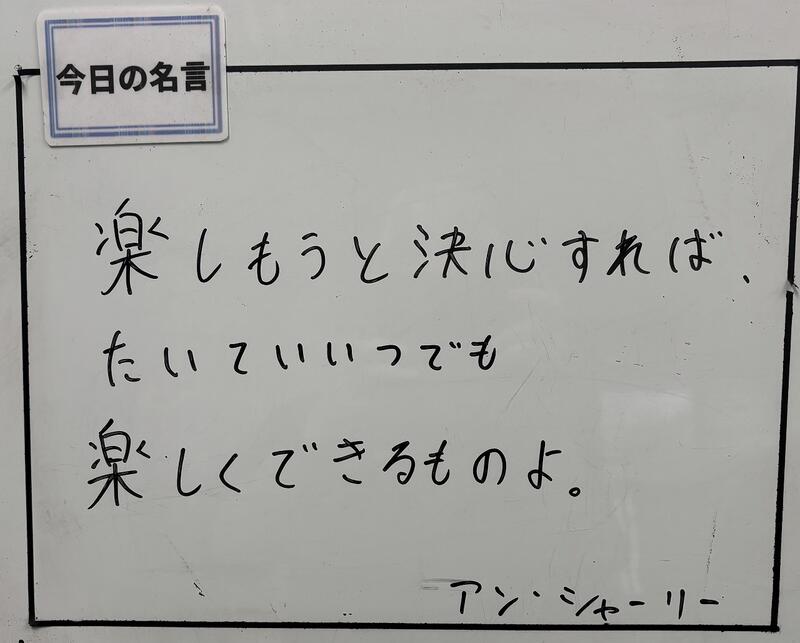 今日の名言
楽しもうと決心すれば、
たいていいつでも
楽しくできるものよ。
アン・シャーリー